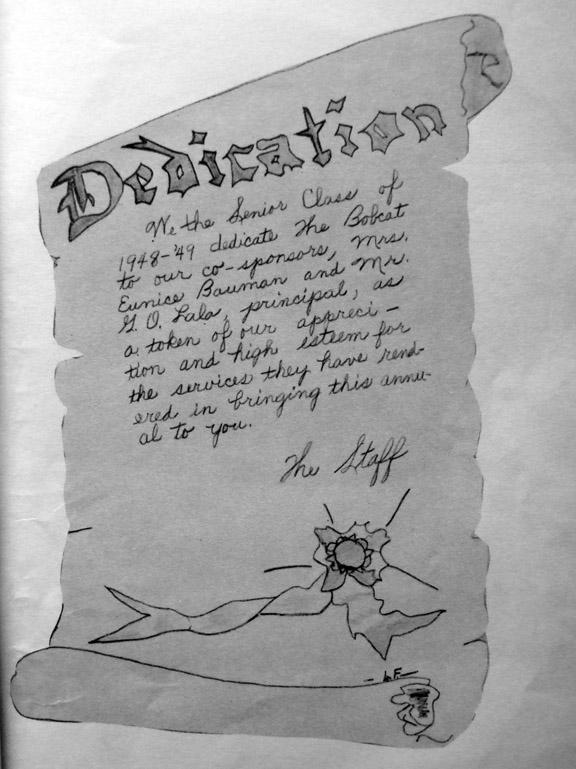 Dedication
We the Senior Class of
1948-'49 dedicate The Bobcat
to our co-sponsors, Mrs.
Eunice Bauman and Mr.
G. O. Lala, principal, as
a token of our appreci-
tion and high esteem for
the services they have rend-
ered in bringing this annu-
al to you.
The Staff